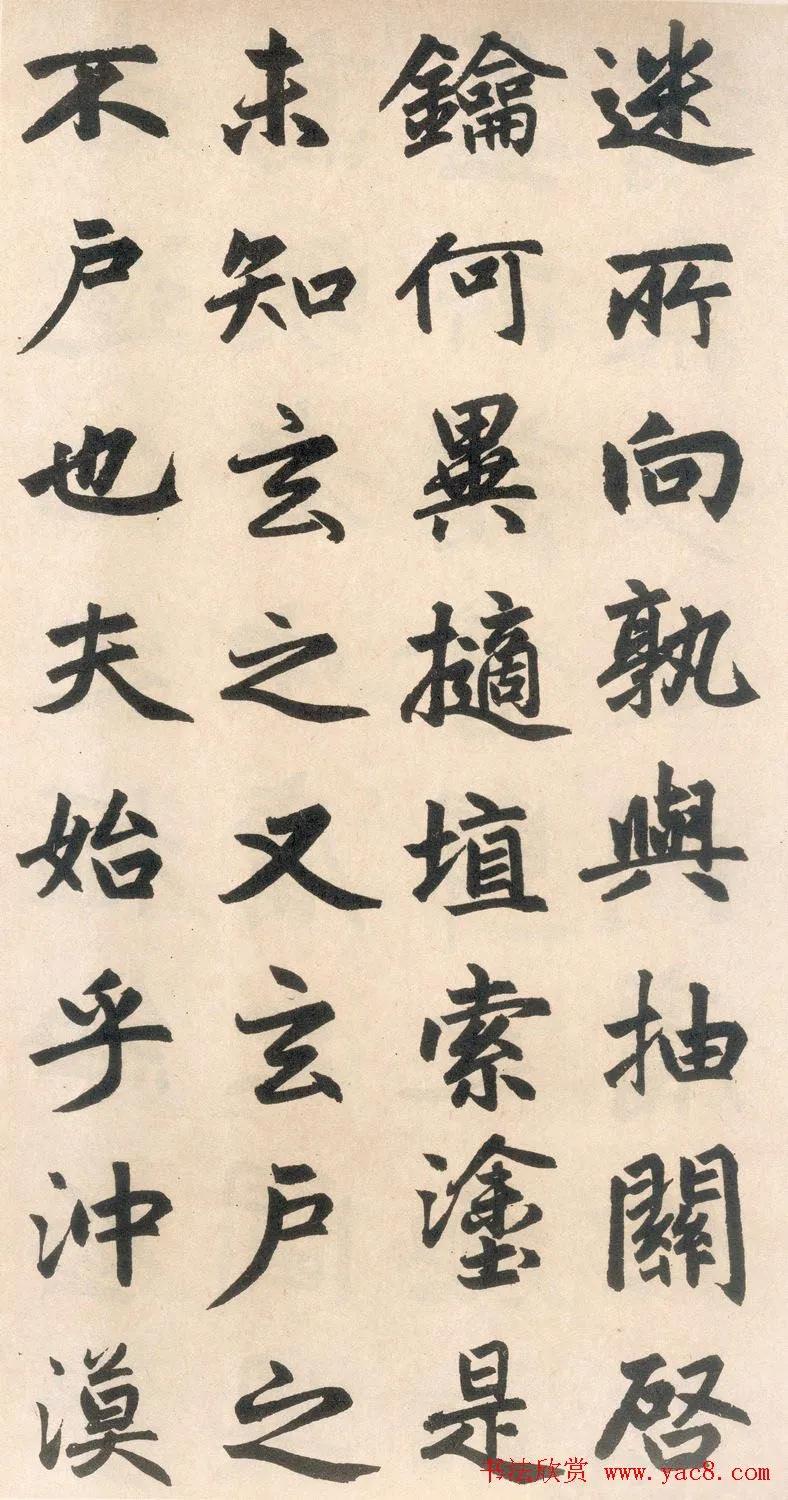 迷所向孰與抽關啓
鑰何異擿埴索塗是
未知玄之又玄戶之
不戶也夫始乎沖漠
书法欣赏 www.yac8.com